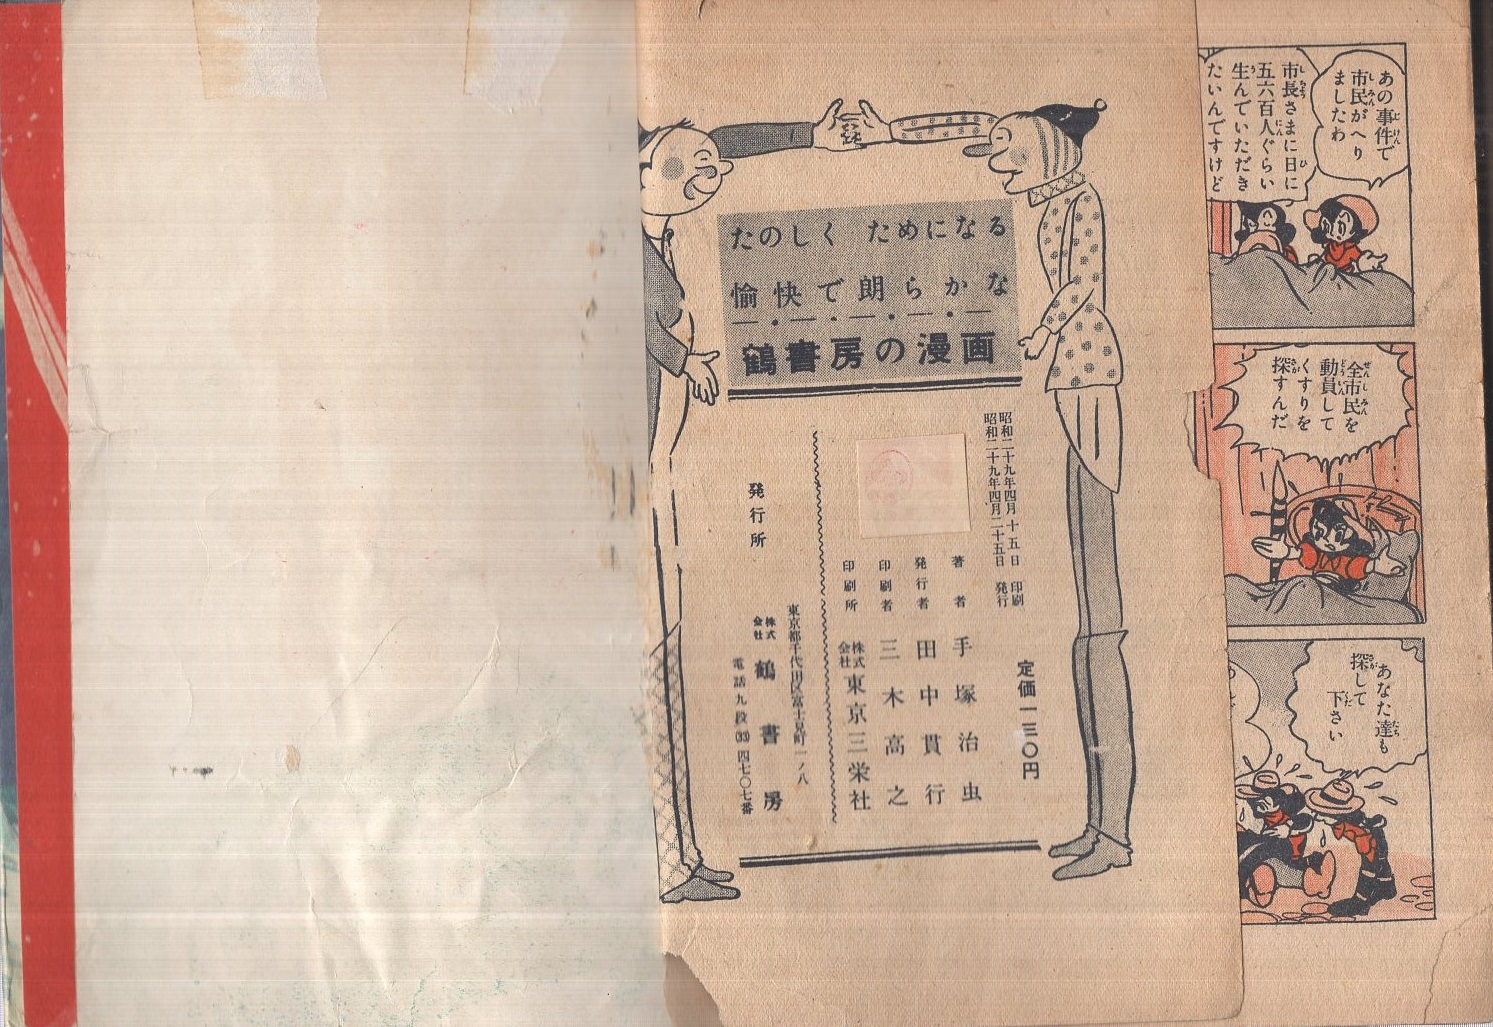 あの事件で
市民がへり
ましたわ
市長さまに日に
五六百人ぐらい
生んでいただき
たいんですけど
全市民を
動員して
くすりを
探すんだ
あなた達も
探して
下さい
たのしく ためになる
愉快で朗らかな
鶴書房の漫画
昭和二十九年四月十五日 印刷
昭和二十九年四月二十五日 発行
定価一三〇円
著者 手塚治虫
発行者 田中貫行
印刷者 三木高之
印刷所 株式会社 東京三栄社
発行所
東京都千代田区富士見町一ノ八
株式会社 鶴書房
電話九段(33)四七〇七番